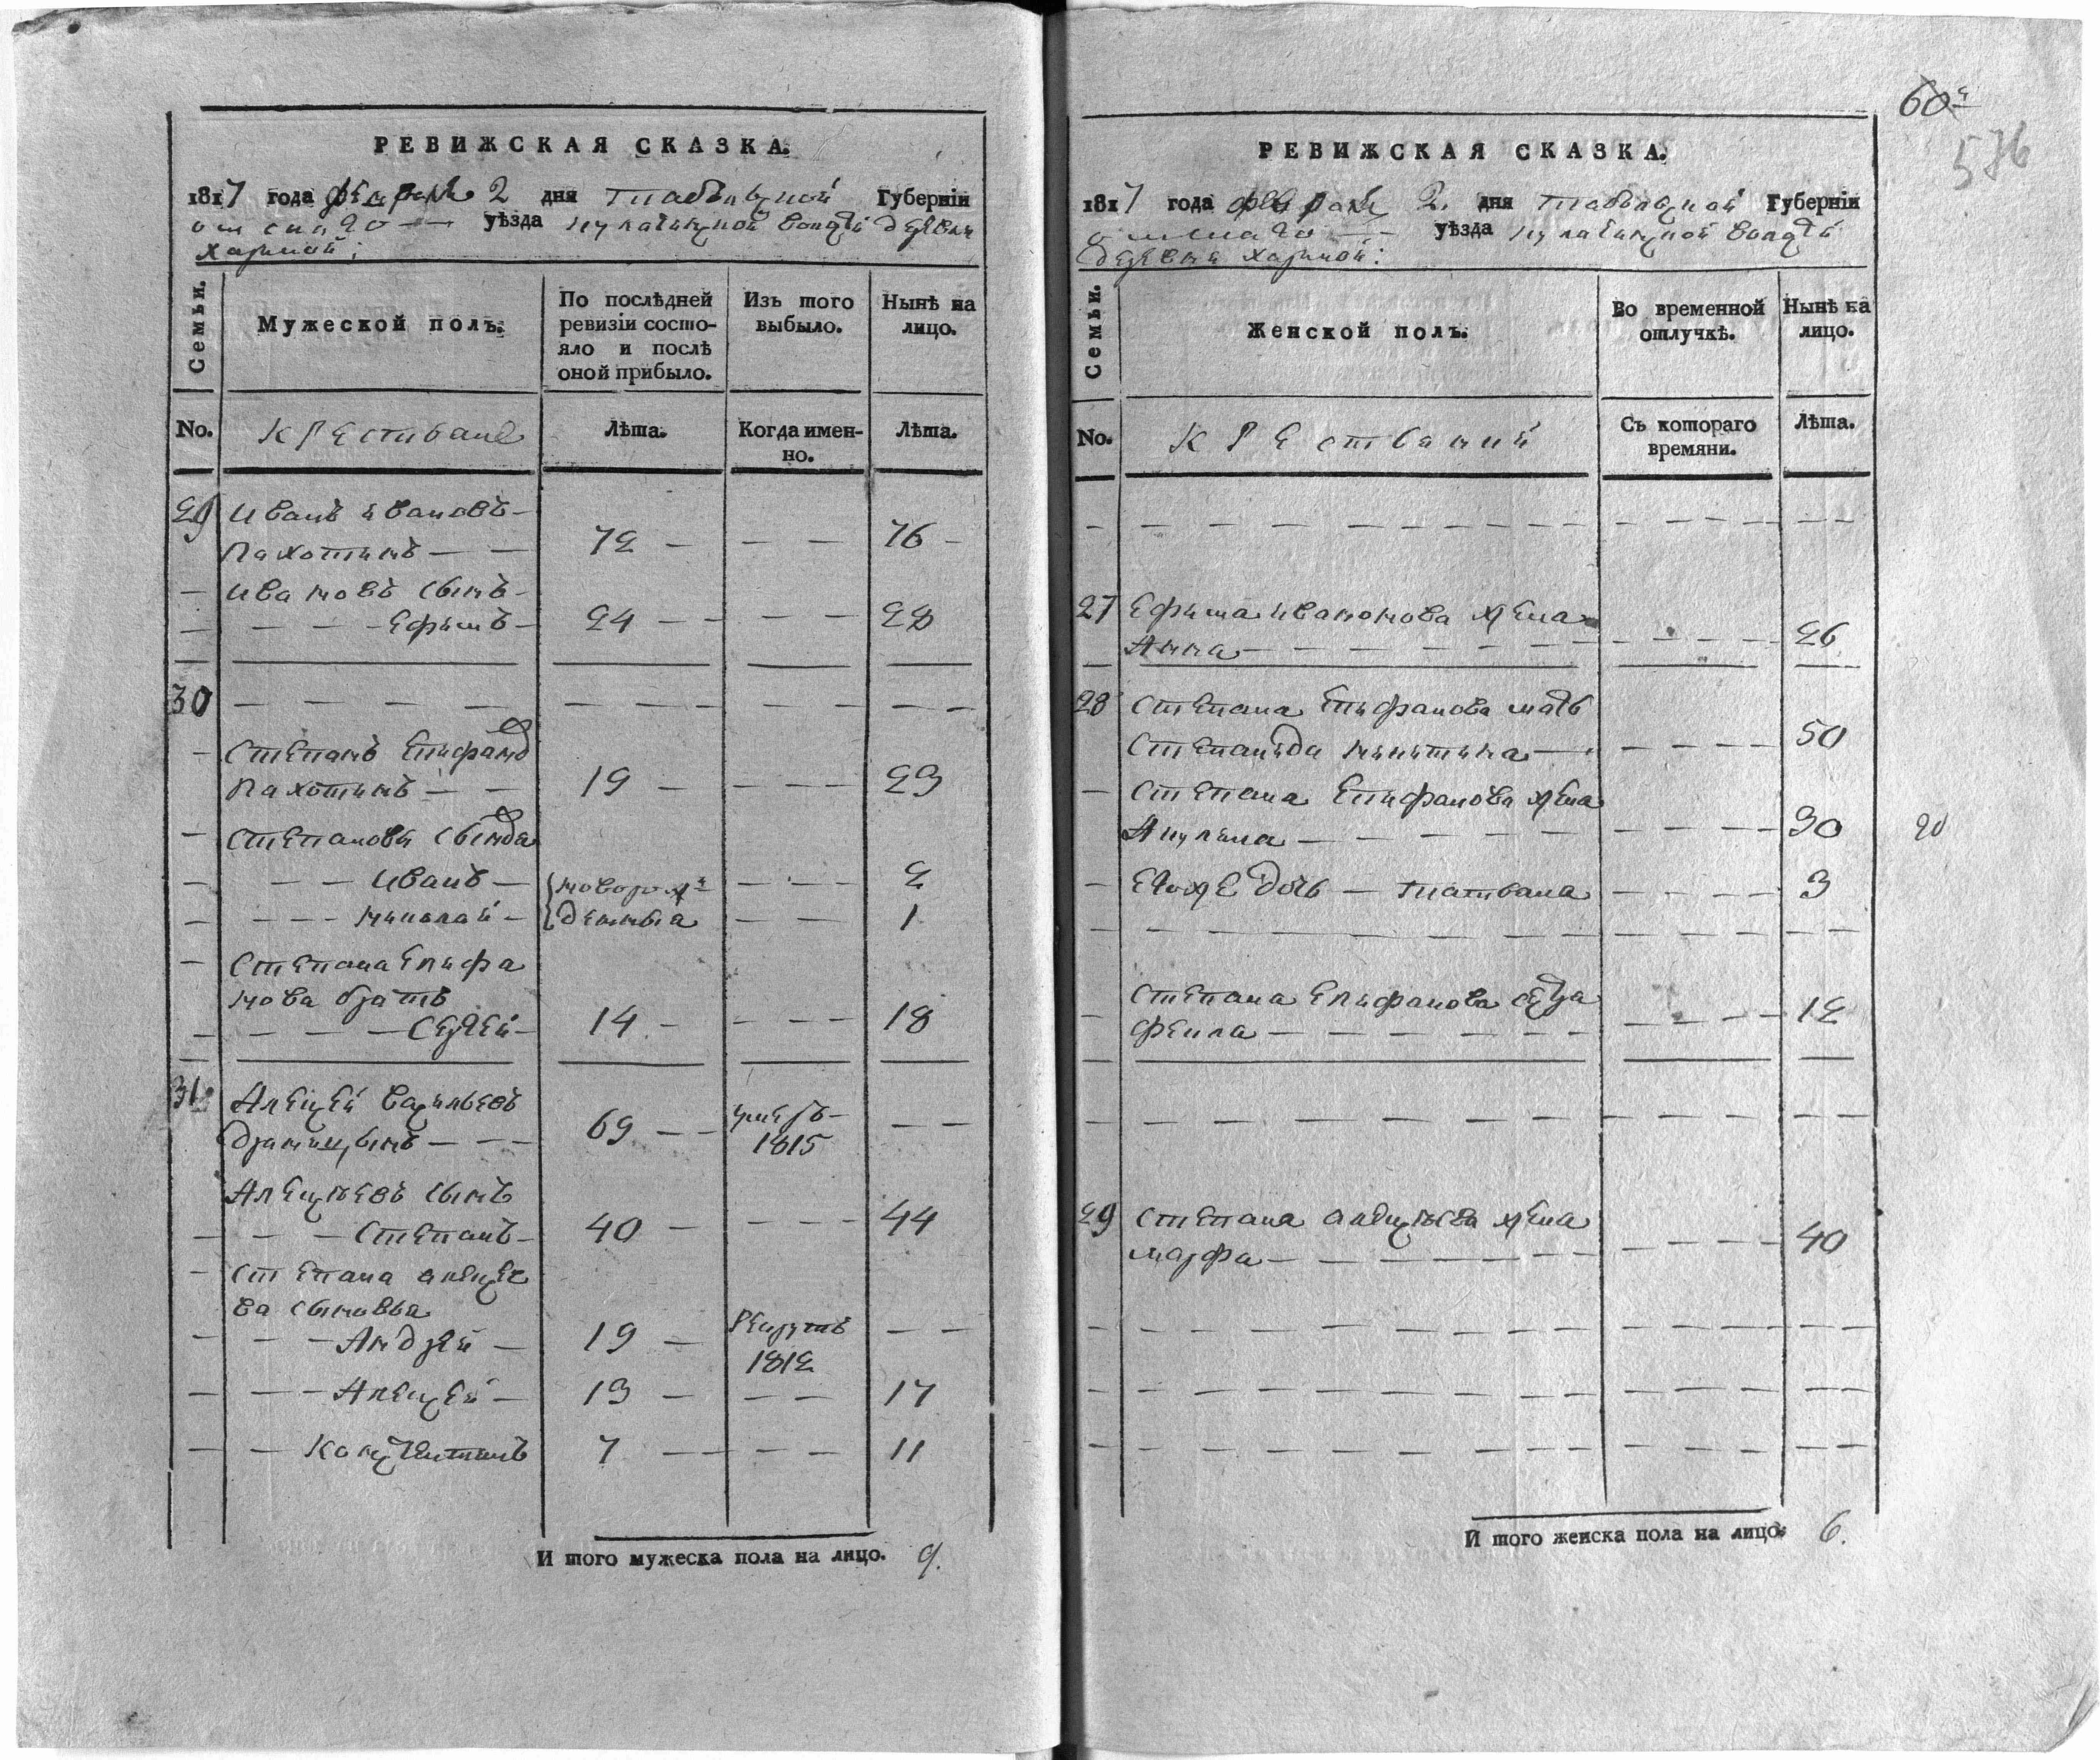 РЕВИЖСКАЯ СКАЗКА.
1817 года февраля 2 дня Тобольской Губернiи
омскаго уѣзда кулачинской волости деревни
Харина:
Семьи.
Мужеской полъ.
По послѣдней ревизiи состояло и послѣ оной прибыло.
Изъ того выбыло.
Нынѣ на лицо.
No.
Крестьяне
Лѣта.
Когда именно.
Лѣта.
29 Иванъ Ивановъ
Пахотинъ 72 76
Ивановъ сынъ
Ефимъ 24 28
30
Степанъ Епифановъ
Пахотинъ 19 23
Степановы
Иванъ новорож 2
Николай денныя 1
Степана Епифа
нова братъ
Сергей 14 18
31 Алексей Васильевъ
69 умеръ 1815
Алексеевъ сынъ
Степанъ 40 44
Степана Алексее
ва сыновья
Андрей 19 Рекрутъ 1812
Алексей 13 17
Констентинъ 7 11
И того мужеска пола на лицо. 9.
60
576
РЕВИЖСКАЯ СКАЗКА.
1817 года февраля 2 дня Тобольской Губернiи
омскаго уѣзда кулачинской волости
деревни Хариной:
Семьи.
Женской полъ.
Во временной отлучкѣ.
Нынѣ на лицо.
No.
Крестьяни
Съ котораго времяни.
Лѣта.
27 Ефима Иванова жена
Анна 26
28 Степана Епифанова мать
Степанида Никитина 50
Степана Епифанова жена
Акулина 30 20
Ево же дочь Татьяна 3
Степана Епифанова сестра
Фекла 12
29 Степана Алексеева жена
Марфа 40
И того женска пола на лицо: 6.